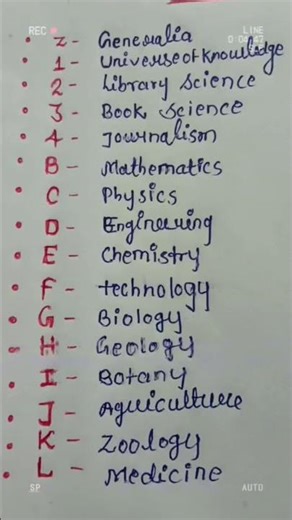 REC
LINE
0:04:43
• z - Generalia
• 1 - Universe of knowledge
• 2 - Library Science
• 3 - Book Science
• 4 - Journalism
• B - Mathematics
• C - Physics
• D - Engineering
• E - Chemistry
• F - technology
• G - Biology
• H - Geology
• I - Botany
• J - Aguiculture
• K - Zoology
• L - Medicine
SP
AUTO